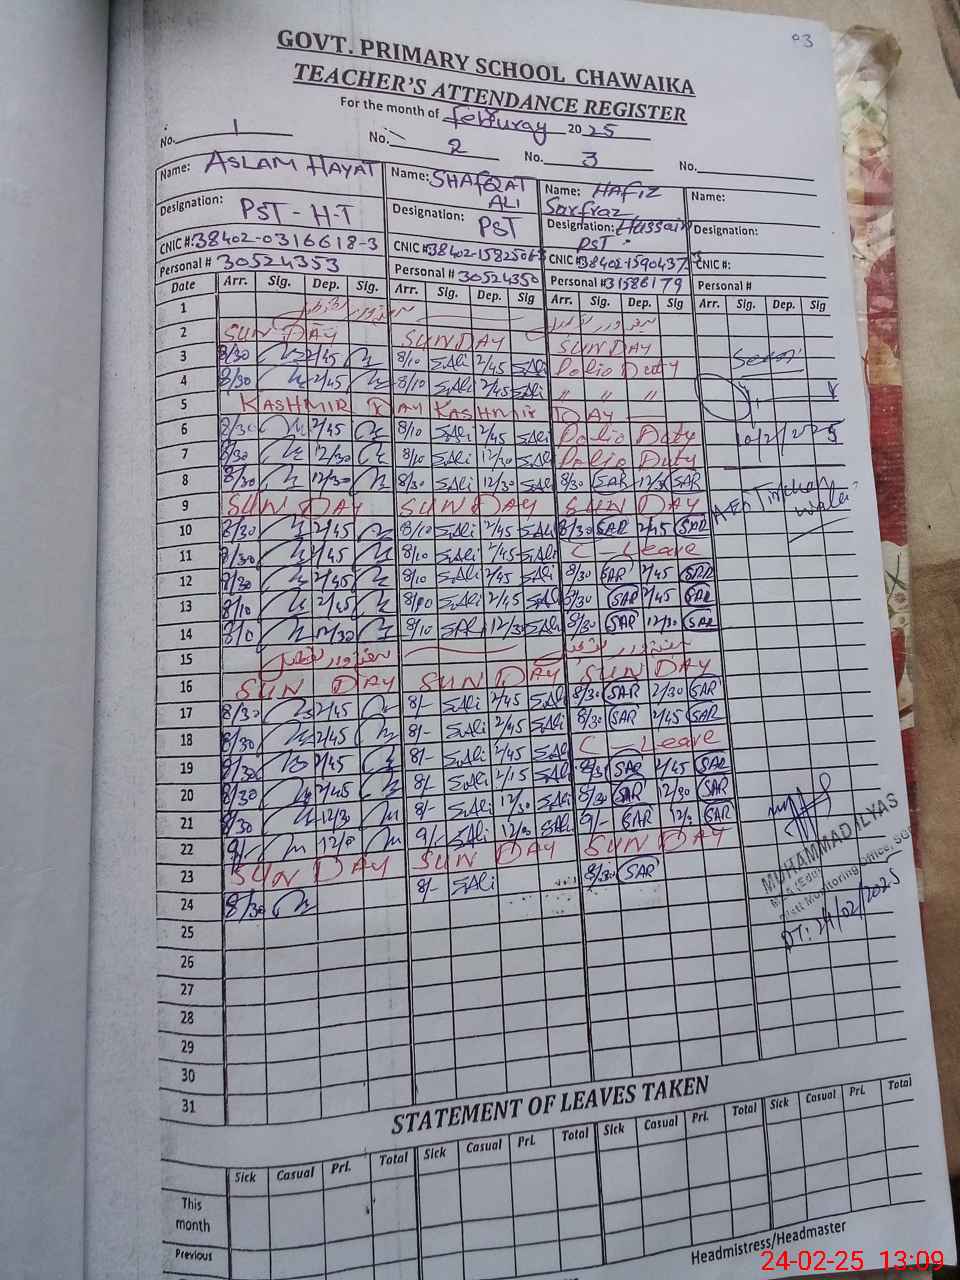 93
GOVT. PRIMARY SCHOOL CHAWAIKA
TEACHER'S ATTENDANCE REGISTER
For the month of februray 2025
No. 1 No. 2 No. 3 No.
Name: ASLAM HAYAT Name: SHAFQAT ALI Name: HAFIZ Sarfraz Hussain Name:
Designation: PST - H.T Designation: PST Designation: PST Designation:
CNIC #: 38402-0316618-3 CNIC # CNIC # CNIC #:
Personal # 30524353 Personal # 30524350 Personal # 31586179 Personal #
Date Arr. Sig. Dep. Sig. Arr. Sig. Dep. Sig. Arr. Sig. Dep. Sig Arr. Sig. Dep. Sig
1
2 SUN DAY SUNDAY SUNDAY
3 8/30 2/45 8/10 S.Ali 2/45 S.Ali Polio Duty
4 8/30 2/45 8/10 S.Ali 2/45 S.Ali " " "
5 KASHMIR DAY KASHMIR DAY
6 8/30 2/45 8/10 S.Ali 2/45 S.Ali Polio Duty 10/2/2025
7 8/30 12/30 8/10 S.Ali 12/30 S.Ali Polio Duty
8 8/30 12/30 8/30 S.Ali 12/30 S.Ali 8/30 SAR 12/30 SAR
9 SUN DAY SUN DAY SUN DAY
10 8/30 2/45 8/10 S.Ali 2/45 S.Ali 8/30 SAR 2/45 SAR
11 8/30 2/45 8/10 S.Ali 2/45 S.Ali C - Leave
12 8/30 2/45 8/10 S.Ali 2/45 S.Ali 8/30 SAR 2/45 SAR
13 8/10 2/45 8/10 S.Ali 2/45 S.Ali 8/30 SAR 2/45 SAR
14 8/10 12/30 8/10 S.Ali 12/30 S.Ali 8/30 SAR 12/30 SAR
15
16 SUN DAY SUN DAY SUN DAY
17 8/30 2/45 8/- S.Ali 2/45 S.Ali 8/30 SAR 2/30 SAR
18 8/30 2/45 8/- S.Ali 2/45 S.Ali 8/30 SAR 2/45 SAR
19 8/30 2/45 8/- S.Ali 2/45 S.Ali C - Leave
20 8/30 2/45 8/- S.Ali 2/15 S.Ali 8/30 SAR 2/45 SAR
21 8/30 12/30 8/- S.Ali 12/30 S.Ali 8/30 SAR 12/30 SAR
22 9/- 9/- S.Ali S.Ali 9/- SAR SAR
23 SUN DAY SUN DAY SUN DAY
24 8/30 8/- S.Ali 8/30 SAR
25
26
27
28
29
30
31
MUHAMMAD ILYAS
Distt Monitoring Officer,
DT: 24/02/2025
STATEMENT OF LEAVES TAKEN
Sick Casual Pri. Total Sick Casual Pri. Total Sick Casual Pri. Total Sick Casual Pri. Total
This month
Previous
Headmistress/Headmaster
24-02-25 13:09